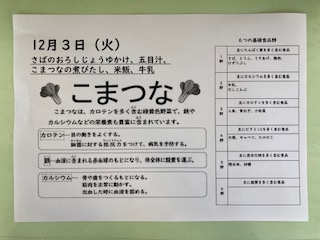 12月3日（火）
さばのおろしじょうゆかけ、五目汁、
こまつなの煮びたし、米飯、牛乳
こまつな
こまつなは、カロテンを多く含む緑黄色野菜で、鉄や
カルシウムなどの栄養素も豊富に含まれています。
カロテン…目の働きをよくする。
細菌に対する抵抗力をつけて、病気を予防する。
鉄…血液に含まれる赤血球のもとになり、体全体に酸素を運ぶ。
カルシウム…骨や歯をつくるもとになる。
筋肉を正常に動かす。
出血した時に血液を固める。
6つの基礎食品群
主にたんぱく質を多く含む食品
1群
主にカルシウムを多く含む食品
2群
牛乳、
主にカロテンを多く含む食品
3群
人参、
主にビタミンCを多く含む食品
4群
大根、キャベツ、
主に炭水化物を多く含む食品
5群
精白米、砂糖
主に脂質を多く含む食品
6群